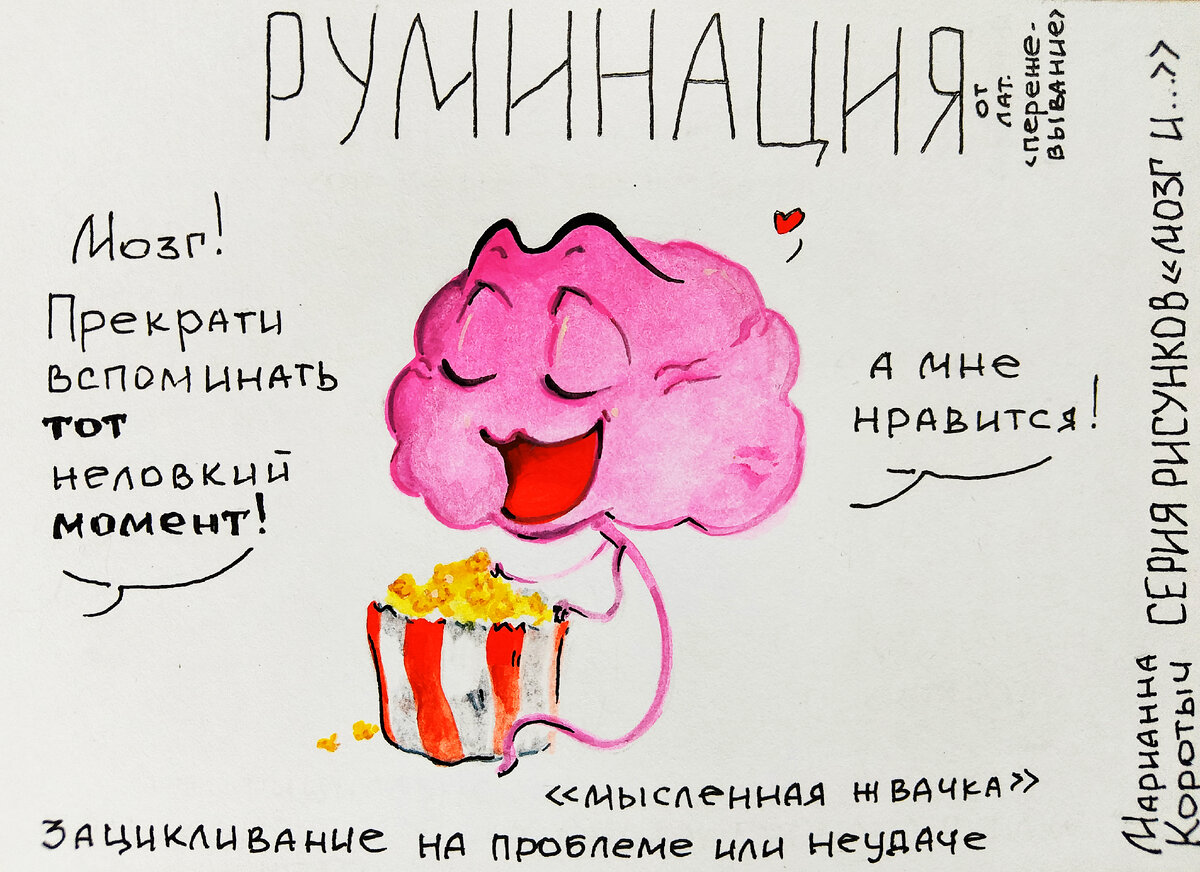 РУМИНАЦИЯ
ОТ
ЛАТ.
«ПЕРЕЖЕ-
ВЫВАНИЕ»
Мозг!
Прекрати
вспоминать
тот
неловкий
момент!
А мне
нравится!
«Мысленная жвачка»
Зацикливание на проблеме или неудаче
Марианна
Коротыч
СЕРИЯ РИСУНКОВ «МОЗГ И...»